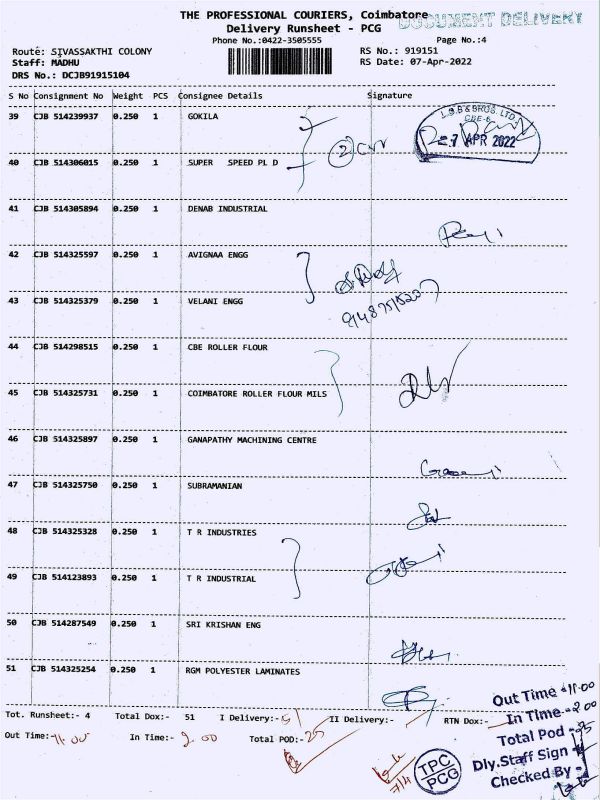 THE PROFESSIONAL COURIERS, Coimbatore
DOCUMENT DELIVERY
Delivery Runsheet - PCG
Phone No.:0422-3505555
Page No.:4
Route: SIVASSAKTHI COLONY
RS No.: 919151
Staff: MADHU
RS Date: 07-Apr-2022
DRS No.: DCJB91915104
S No Consignment No Weight PCS Consignee Details Signature
39 CJB 514239937 0.250 1 GOKILA
L.G.B & BROS. LTD.
CBE-6
7 APR 2022
40 CJB 514306015 0.250 1 SUPER SPEED PL D
41 CJB 514305894 0.250 1 DENAB INDUSTRIAL
42 CJB 514325597 0.250 1 AVIGNAA ENGG
43 CJB 514325379 0.250 1 VELANI ENGG
44 CJB 514298515 0.250 1 CBE ROLLER FLOUR
45 CJB 514325731 0.250 1 COIMBATORE ROLLER FLOUR MILS
46 CJB 514325897 0.250 1 GANAPATHY MACHINING CENTRE
47 CJB 514325750 0.250 1 SUBRAMANIAN
48 CJB 514325328 0.250 1 T R INDUSTRIES
49 CJB 514123893 0.250 1 T R INDUSTRIAL
50 CJB 514287549 0.250 1 SRI KRISHAN ENG
51 CJB 514325254 0.250 1 RGM POLYESTER LAMINATES
Tot. Runsheet:- 4 Total Dox:- 51 I Delivery:- 51 II Delivery:- RTN Dox:-
Out Time:- 11 00 In Time:- 2 00 Total POD:- 25
Out Time - 11.00
In Time - 2 00
Total Pod - 25
Dly.Staff Sign -
Checked By -
7/4
TPC
PCG